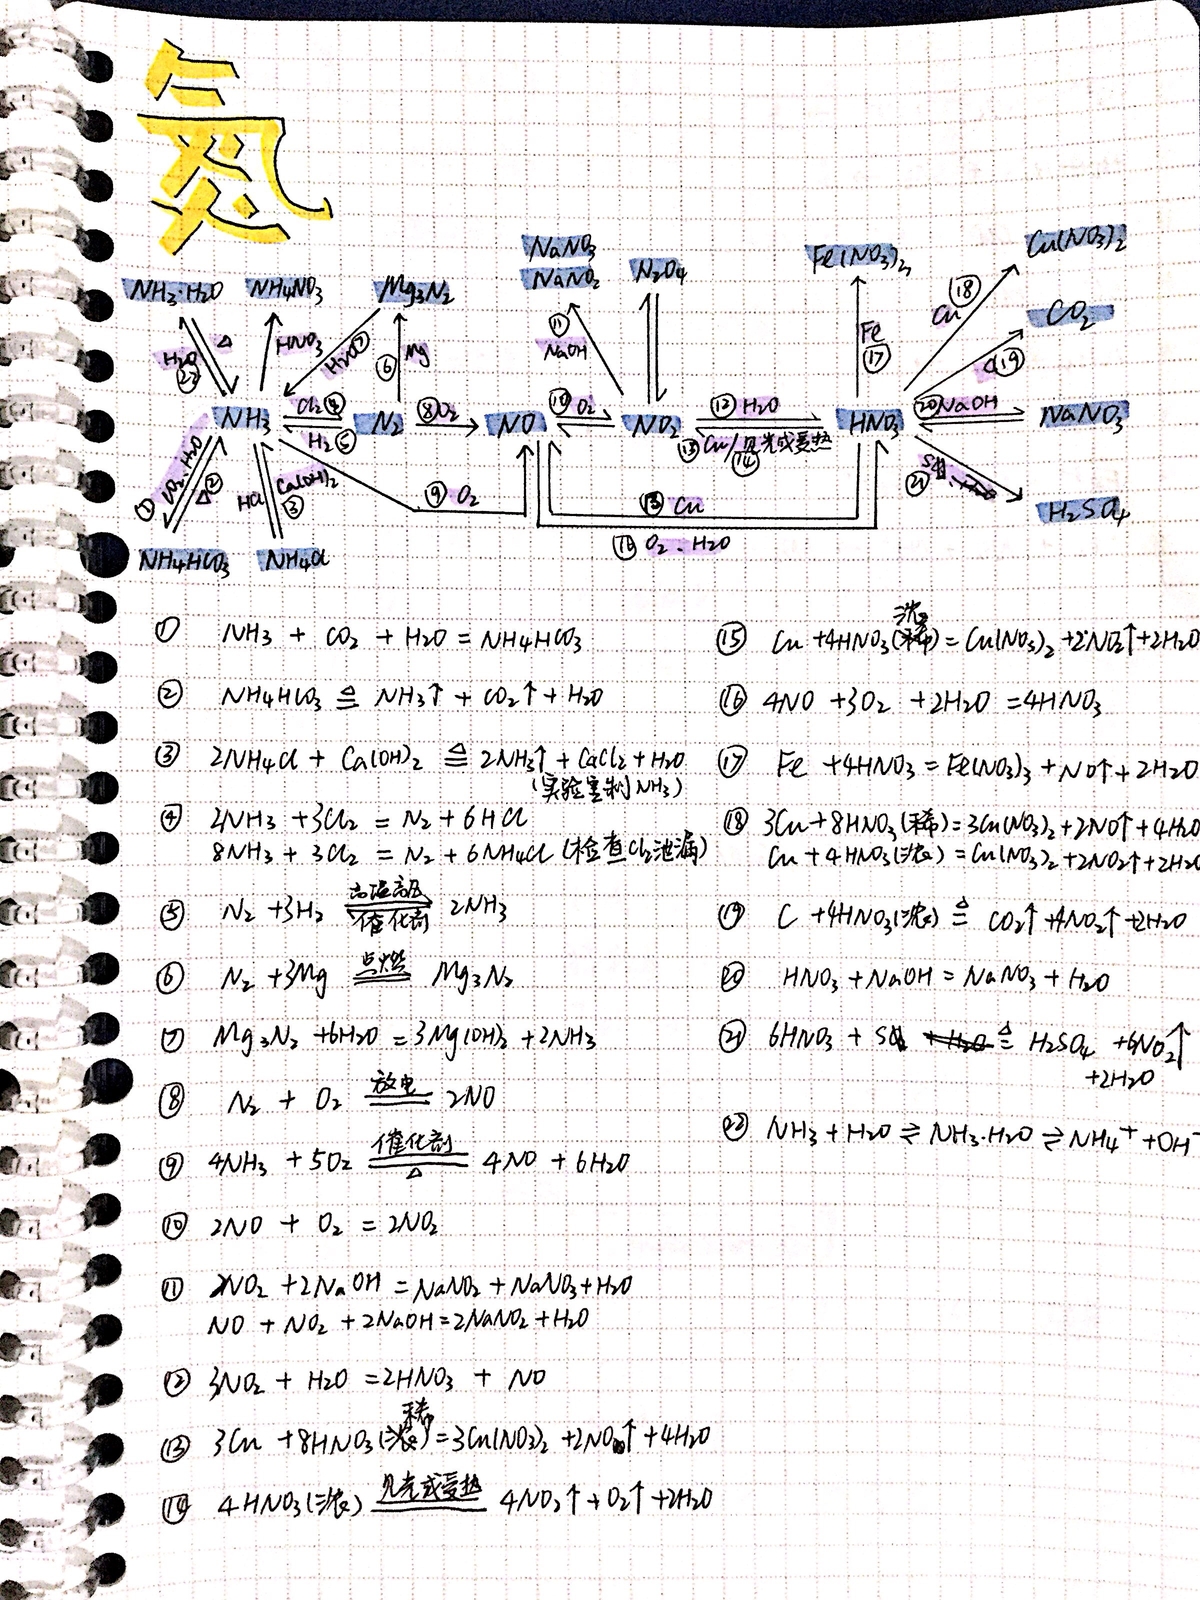 氮
NaNO3
NaNO2
N2O4
Fe(NO3)3
Cu(NO3)2
NH3·H2O
NH4NO3
Mg3N2
CO2
H2O
㉒
△
HNO3
H2O⑦
⑥
Mg
⑪
NaOH
Fe
⑰
Cu
⑱
C⑲
NH3
Cl2④
H2⑤
N2
⑧O2
NO
⑩O2
NO2
⑫H2O
⑬Cu/见光或受热
⑭
HNO3
⑳NaOH
NaNO3
①
CO2·H2O
△②
HCl
Ca(OH)2
③
⑨O2
⑬Cu
⑯O2·H2O
㉑
S
H2SO4
NH4HCO3
NH4Cl
① NH3 + CO2 + H2O = NH4HCO3
② NH4HCO3 ≜ NH3↑ + CO2↑ + H2O
③ 2NH4Cl + Ca(OH)2 ≜ 2NH3↑ + CaCl2 + H2O
(实验室制NH3)
④ 2NH3 + 3Cl2 = N2 + 6HCl
8NH3 + 3Cl2 = N2 + 6NH4Cl (检查Cl2泄漏)
⑤ N2 + 3H2 高温高压 催化剂 2NH3
⑥ N2 + 3Mg 点燃 Mg3N2
⑦ Mg3N2 + 6H2O = 3Mg(OH)2 + 2NH3
⑧ N2 + O2 放电 2NO
⑨ 4NH3 + 5O2 催化剂 △ 4NO + 6H2O
⑩ 2NO + O2 = 2NO2
⑪ 2NO2 + 2NaOH = NaNO2 + NaNO3 + H2O
NO + NO2 + 2NaOH = 2NaNO2 + H2O
⑫ 3NO2 + H2O = 2HNO3 + NO
⑬ 3Cu + 8HNO3(稀) = 3Cu(NO3)2 + 2NO↑ + 4H2O
⑭ 4HNO3(浓) 见光或受热 4NO2↑ + O2↑ + 2H2O
⑮ Cu + 4HNO3(浓) = Cu(NO3)2 + 2NO2↑ + 2H2O
⑯ 4NO + 3O2 + 2H2O = 4HNO3
⑰ Fe + 4HNO3 = Fe(NO3)3 + NO↑ + 2H2O
⑱ 3Cu + 8HNO3(稀) = 3Cu(NO3)2 + 2NO↑ + 4H2O
Cu + 4HNO3(浓) = Cu(NO3)2 + 2NO2↑ + 2H2O
⑲ C + 4HNO3(浓) ≜ CO2↑ + 4NO2↑ + 2H2O
⑳ HNO3 + NaOH = NaNO3 + H2O
㉑ 6HNO3 + S ≜ H2SO4 + 6NO2↑
+ 2H2O
㉒ NH3 + H2O ⇌ NH3·H2O ⇌ NH4⁺ + OH⁻